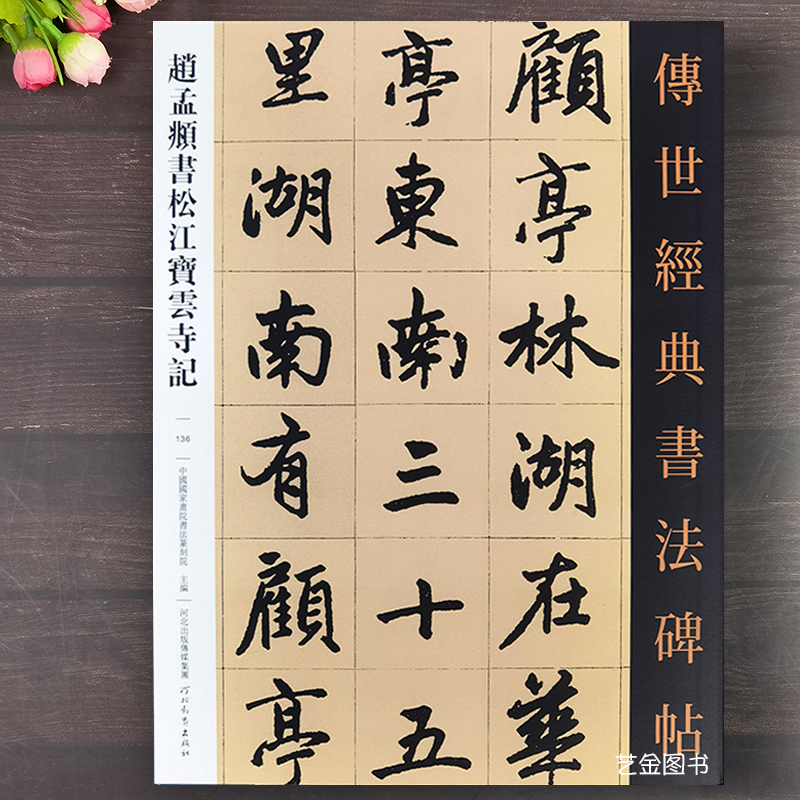 傳世經典書法碑帖
顧亭林湖在華
亭東南三十五
里湖南有顧亭
趙孟頫書松江寶雲寺記
136
中國國家畫院書法篆刻院 主編
河北出版傳媒集團
河北教育出版社
艺金图书